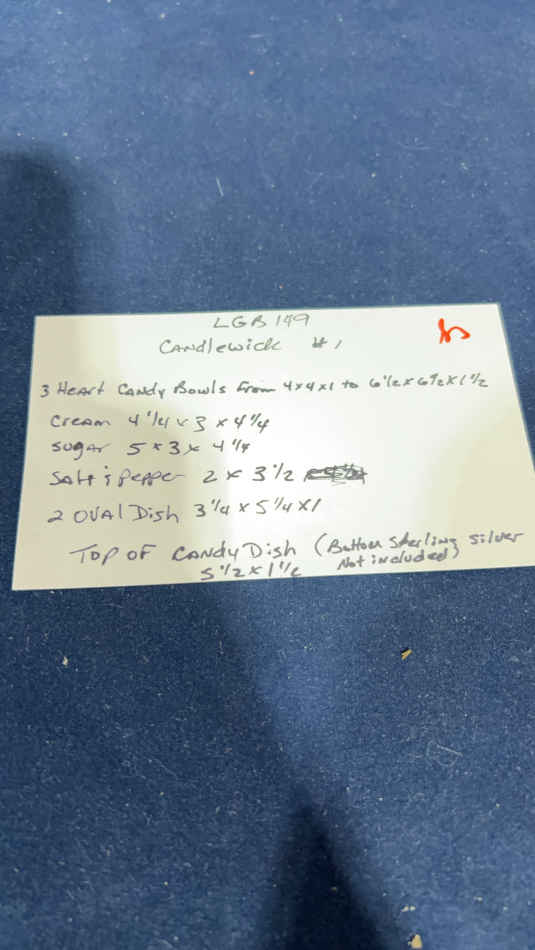 LGB 149
Candlewick #1
3 Heart Candy Bowls from 4x4x1 to 6 1/2 x 6 1/2 x 1 1/2
Cream 4 1/4 x 3 x 4 1/4
Sugar 5 x 3 x 4 1/4
Salt & Pepper 2 x 3 1/2
2 Oval Dish 3 1/4 x 5 1/4 x 1
Top of Candy Dish (Bottom Sterling Silver
Not included)
5 1/2 x 1 1/2